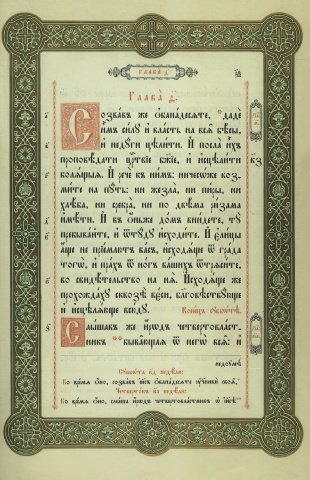 Глава̀ ѳ҃.
Созва́въ же ѻ҆бана́десѧте, дадѐ
и҆̀мъ си́лꙋ и҆ вла́сть на всѧ̑ бѣ́сы,
и҆ недꙋ́ги цѣли́ти. И҆ посла̀ и҆̀хъ
проповѣ́дати црⷭ҇твїе бж҃їе, и҆ и҆сцѣли́ти
болѧ́щыѧ. И҆ речѐ къ ни̑мъ: ничесѡ́же воз-
ми́те на пꙋ́ть: ни жезла̀, ни пи́ры, ни
хлѣ́ба, ни сребра̀, ни по двѣма̀ ри́зама
и҆мѣ́ти. И҆ въ ѻ҆́ньже до́мъ вни́дете, тꙋ̀
пребыва́йте, и҆ ѿтꙋ́дꙋ и҆сходи́те. И҆ є҆ли́цы
а҆́ще не прїе́млютъ ва́съ, и҆сходѧ́ще ѿ гра́да
тогѡ̀, и҆ пра́хъ ѿ но́гъ ва́шихъ ѿтрѧси́те,
во свидѣ́тельство на нѧ̀. И҆сходѧ́ще же
прохожда́хꙋ сквозѣ̀ вє́си, благовѣствꙋ́юще
и҆ и҆сцѣлѧ́юще всю́дꙋ. Коне́цъ сꙋббѡ́тѣ.
Слы́шавъ же и҆́рѡдъ четвертовла́ст-
никъ быва̑ющаѧ ѿ негѡ̀ всѧ̑: и҆
недоꙋмѣ́-
Во вре́мѧ ѻ҆́но, созва̀ і҆и҃съ ѻ҆бана́десѧте ᲂу҆чн҃ки̑ своѧ̑.
Во вре́мѧ ѻ҆́но, слы́ша и҆́рѡдъ четвертовла́стникъ ѡ҆ і҆и҃сѣ